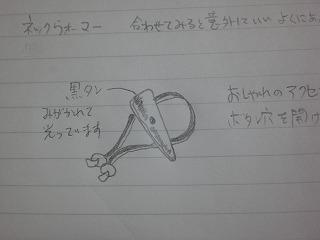 ネックウォーマー 合わせてみると意外にいい よくにあ
黒タン
みがかれて
光っています
おしゃれのアクセ
ボタン穴を開け